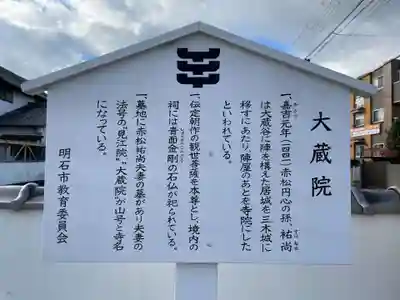 大蔵院
一、嘉吉元年(一四四一)赤松円心の孫、祐尚
は大蔵谷に陣を構えた居城を三木城に
移すにあたり、陣屋のあとを寺院にした
といわれている。
一、伝定朝作の観世菩薩を本尊とし、境内の
祠には青面金剛の石仏が祀られている。
一、墓地に赤松祐尚夫妻の墓があり夫妻の
法号の“見江院”“大蔵院”が山号と寺名
になっている。
明石市教育委員会